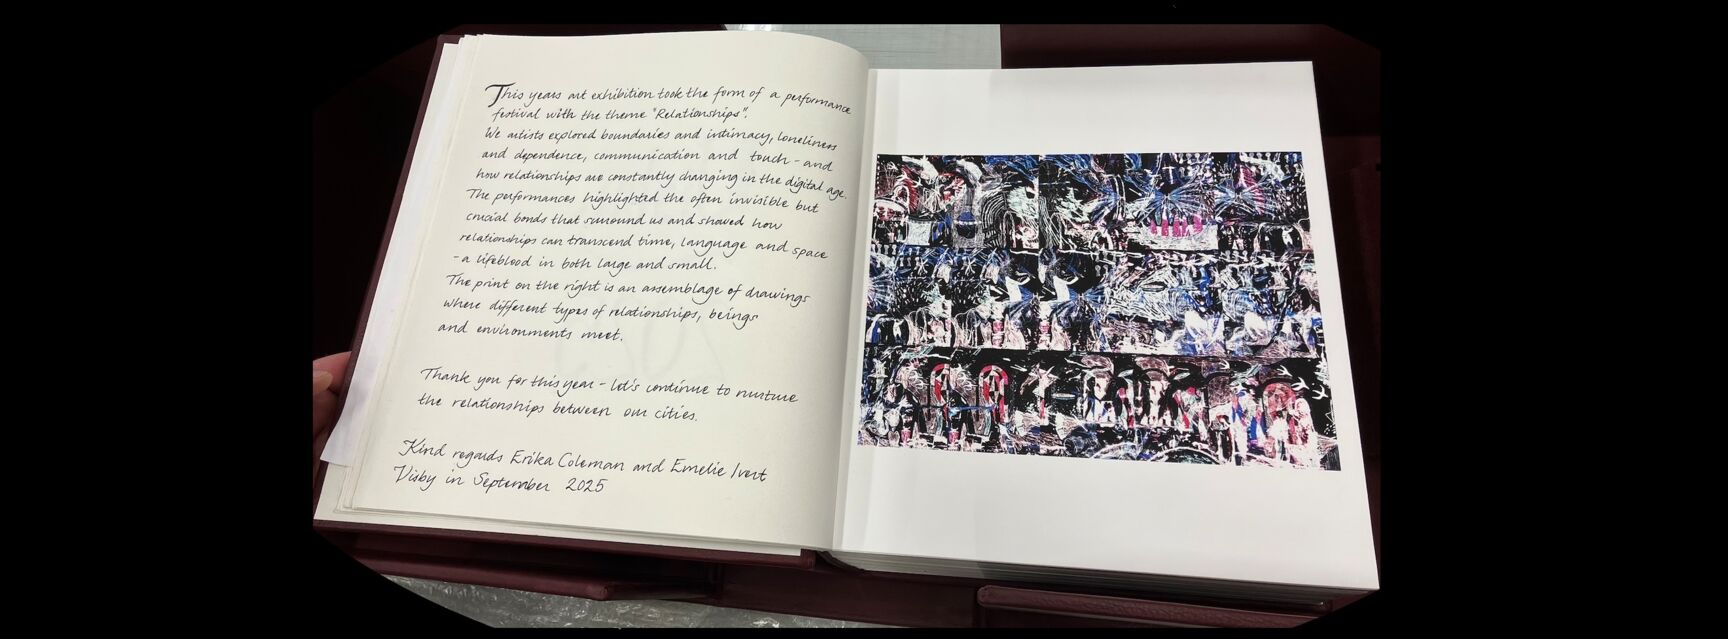 This years art exhibition took the form of a performance
festival with the theme "Relationships".
We artists explored boundaries and intimacy, loneliness
and dependence, communication and touch - and
how relationships are constantly changing in the digital age.
The performances highlighted the often invisible but
crucial bonds that surround us and showed how
relationships can transcend time, language and space
- a lifeblood in both large and small.
The print on the right is an assemblage of drawings
where different types of relationships, beings
and environments meet.
Thank you for this year - let's continue to nurture
the relationships between our cities.
Kind regards Erika Coleman and Emelie Ivert
Visby in September 2025